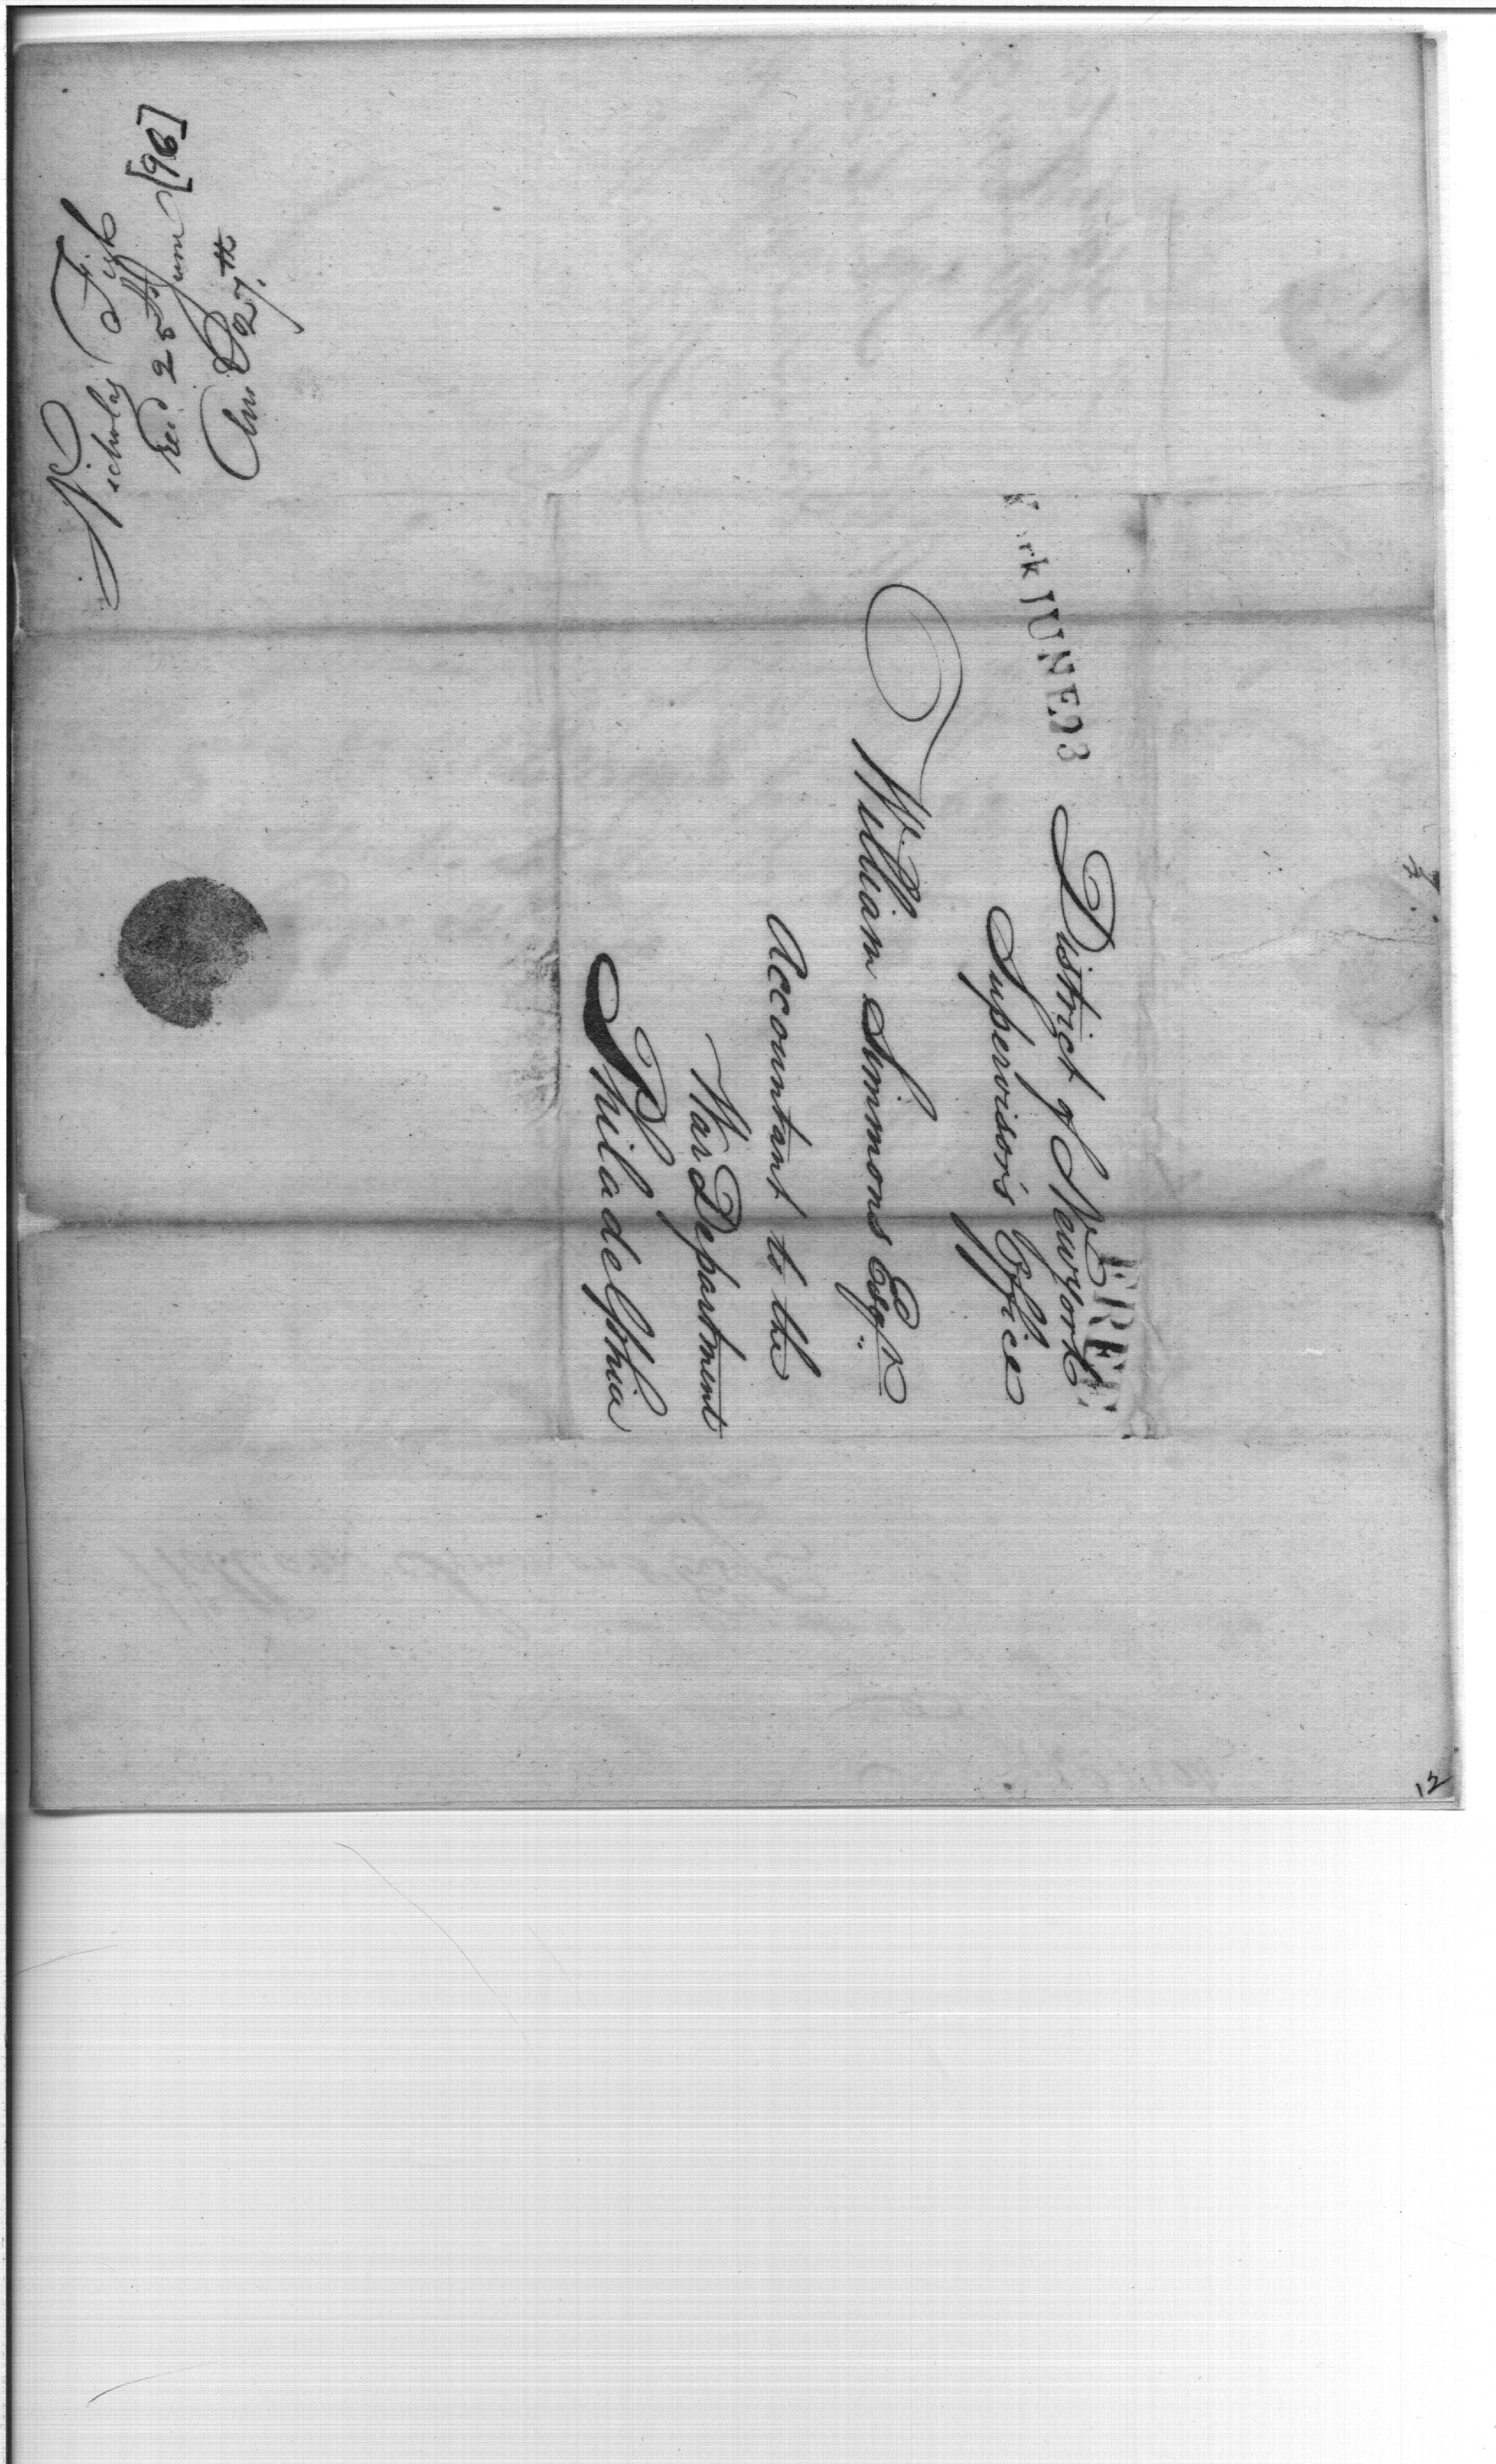 District of Newyork
Supervisor's Office
William Simmons Esqr.
Accountant to the
War Department
Philadelphia
rk JUNE 23
FREE
Nicholas Fish
Recd. 25th June [96]
Ans D 27.th
12